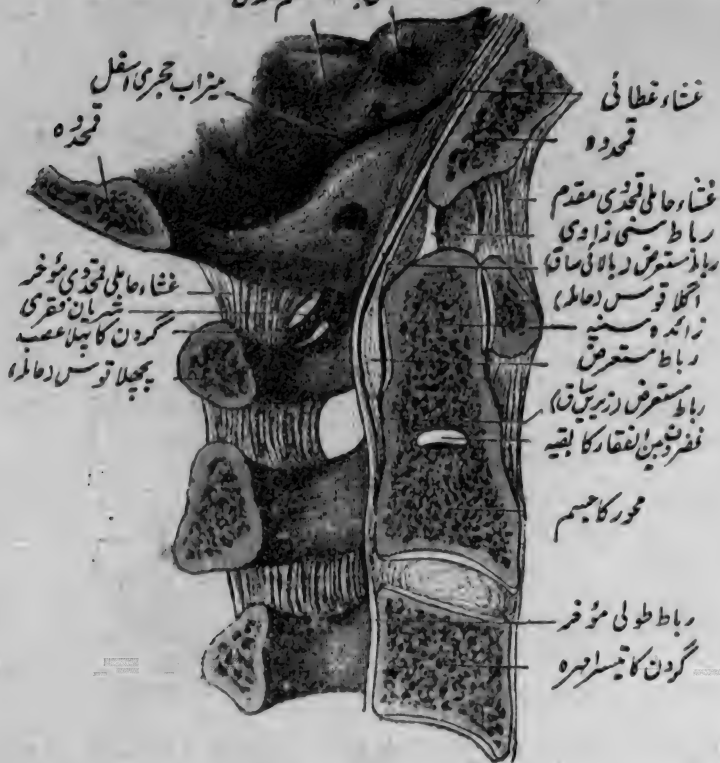 میزاب حجری اسفل
قمحدوہ
غشاء حاملی قمحدوی مؤخر
شریان فقری
گردن کا پہلا عصب
پچھلا قوس (حاملہ)
غشاء غطائی
قمحدوہ
غشاء حاملی قمحدوی مقدم
رباط سنی زاوی
رباط مستعرض (بالائی ساق)
اگلا قوس (حاملہ)
زائدہ سنیہ
رباط مستعرض
رباط مستعرض (زیریں ساق)
غضروف بین الفقار کا بقیہ
محور کا جسم
رباط طولی مؤخر
گردن کا تیسرا مہرہ